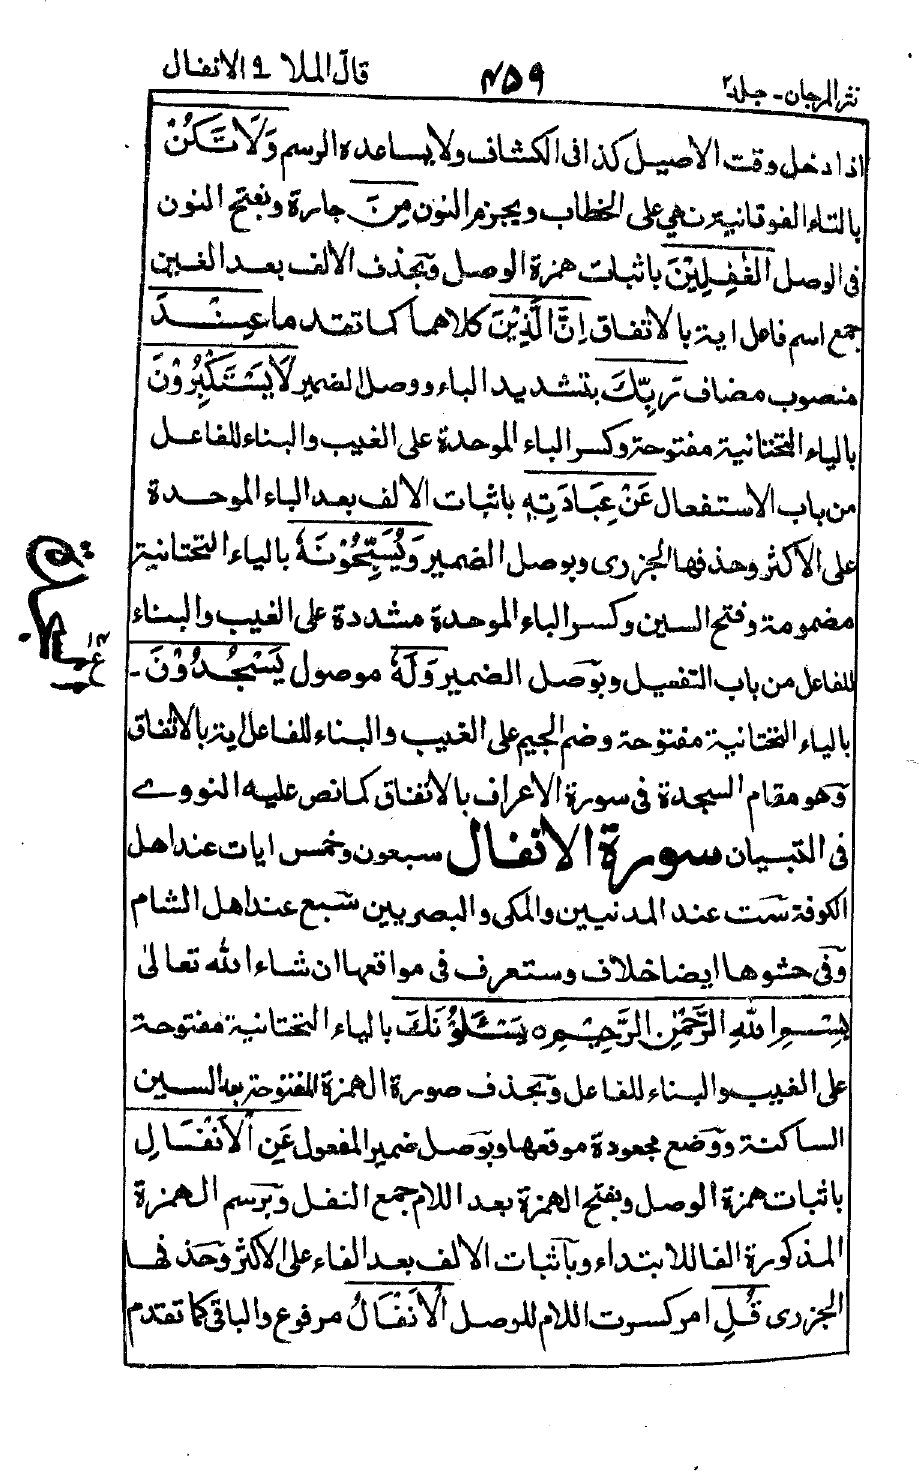 نثر المرجان - جلد ٢
٤٥٩
قال الملا ٩ الانفال
اذا دخل وقت الاصيل كذا فى الكشاف ولا يساعده الرسم وَلَا تَكُنْ
بالتاء الفوقانية نهى على الخطاب ويجزم النون مِنَ جارة وبفتح النون
فى الوصل الْغٰفِلِيْنَ باثبات همزة الوصل وبحذف الالف بعد الغين
جمع اسم فاعل اية بالاتفاق اِنَّ الَّذِيْنَ كلاهما كما تقدما عِنْدَ
منصوب مضاف رَبِّكَ بتشديد الباء ووصل الضمير لَا يَسْتَكْبِرُوْنَ
بالياء التحتانية مفتوحة وكسر الباء الموحدة على الغيب والبناء للفاعل
من باب الاستفعال عَنْ عِبَادَتِهٖ باثبات الالف بعد الباء الموحدة
على الاكثر وحذفها الجزرى وبوصل الضمير وَيُسَبِّحُوْنَهٗ بالياء التحتانية
مضمومة وفتح السين وكسر الباء الموحدة مشددة على الغيب والبناء
للفاعل من باب التفعيل وبوصل الضمير وَلَهٗ موصول يَسْجُدُوْنَ -
بالياء التحتانية مفتوحة وضم الجيم على الغيب والبناء للفاعل اية بالاتفاق
وهو مقام السجدة فى سورة الاعراف بالاتفاق كما نص عليه النووے
فى التبيان سورة الانفال سبعون وخمس ايات عند اهل
الكوفة ست عند المدنيين والمكى والبصريين سبع عند اهل الشام
وفى حشوها ايضا خلاف وستعرف فى مواقعها ان شاء الله تعالىٰ
بِسْمِ اللهِ الرَّحْمٰنِ الرَّحِيْمِ ه يَسْئَلُوْنَكَ بالياء التحتانية مفتوحة
على الغيب والبناء للفاعل وبحذف صورة الهمزة المفتوحة بعد السين
الساكنة ووضع مجعودة موقعها وبوصل ضمير المفعول عَنِ الْاَنْفَالِ
باثبات همزة الوصل وبفتح الهمزة بعد اللام جمع النفل وبرسم الهمزة
المذكورة الفا للابتداء وباثبات الالف بعد الفاء على الاكثر وحذفها
الجزرى قُلِ امر كسرت اللام للوصل الْاَنْفَالُ مرفوع والباقى كما تقدم